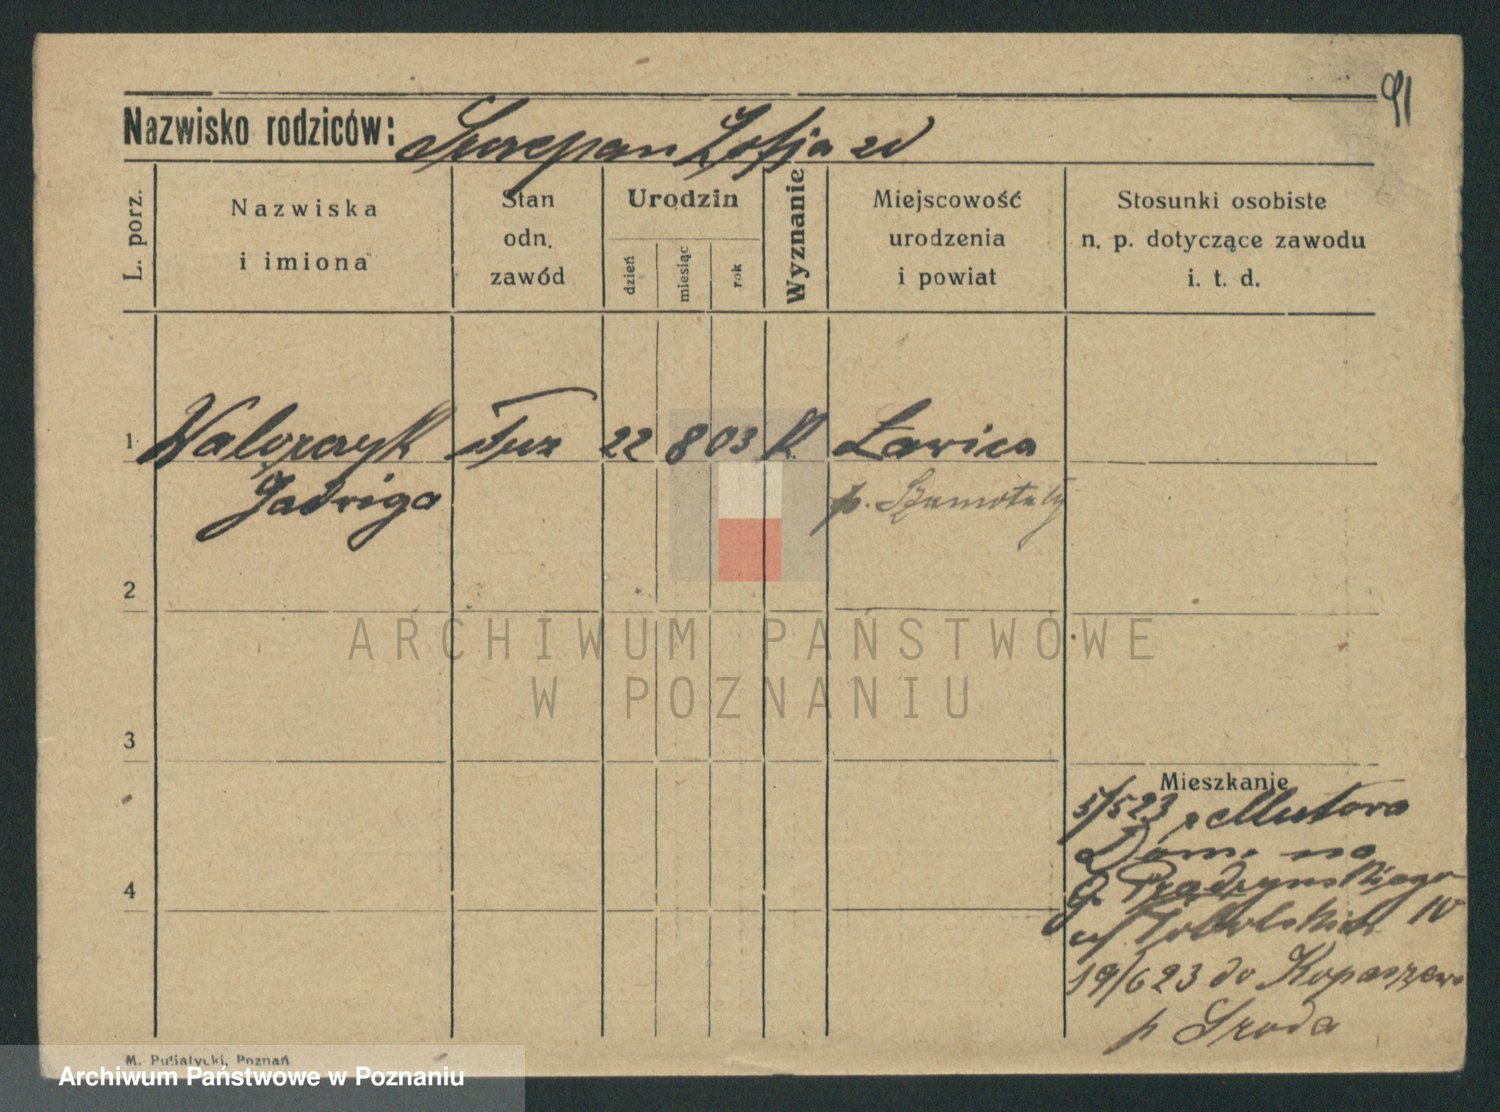 91
Nazwisko rodziców: Szczepan Zofja
L. porz.
Nazwiska
i imiona
Stan
odn.
zawód
Urodzin
dzień
miesiąc
rok
Wyznanie
Miejscowość
urodzenia
i powiat
Stosunki osobiste
n. p. dotyczące zawodu
i. t. d.
1 Walczyk 22 8 03 K Ławica
Jadwiga p. Szamotuły
2
3
4
Mieszkanie
5/5 23 z
Dom.
Prądzyńskiego
IV
19/6 23 do Kopaszewo
p Sroda
M. Putiatycki, Poznań
ARCHIWUM PAŃSTWOWE
W POZNANIU
Archiwum Państwowe w Poznaniu